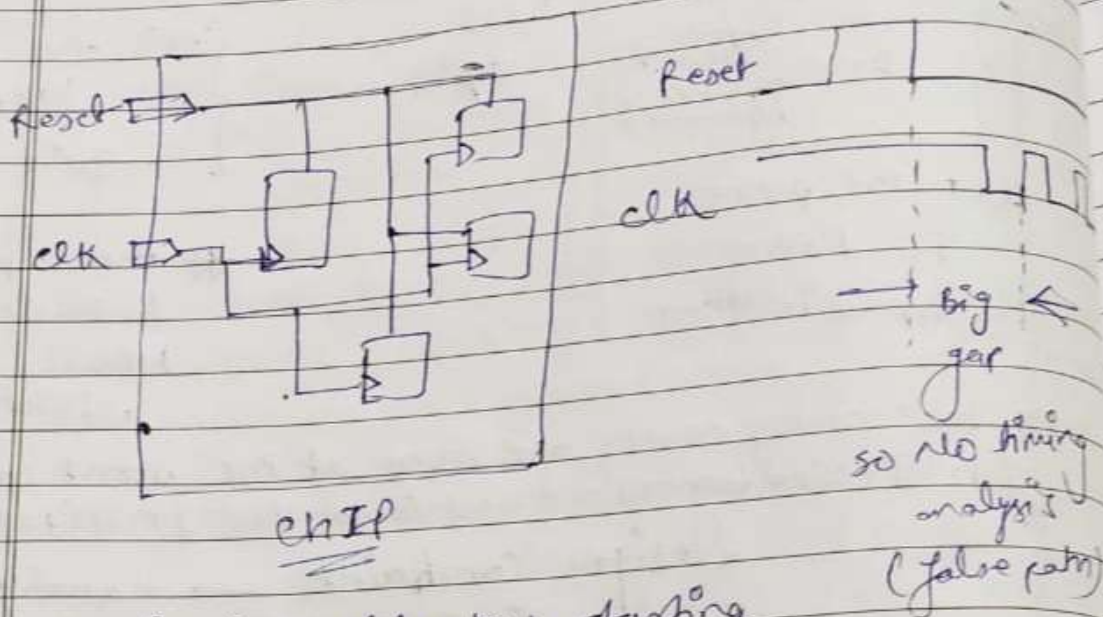 Reset
clk
ChIP
Reset
clk
Big
gap
so No timing
analysis
(false path)